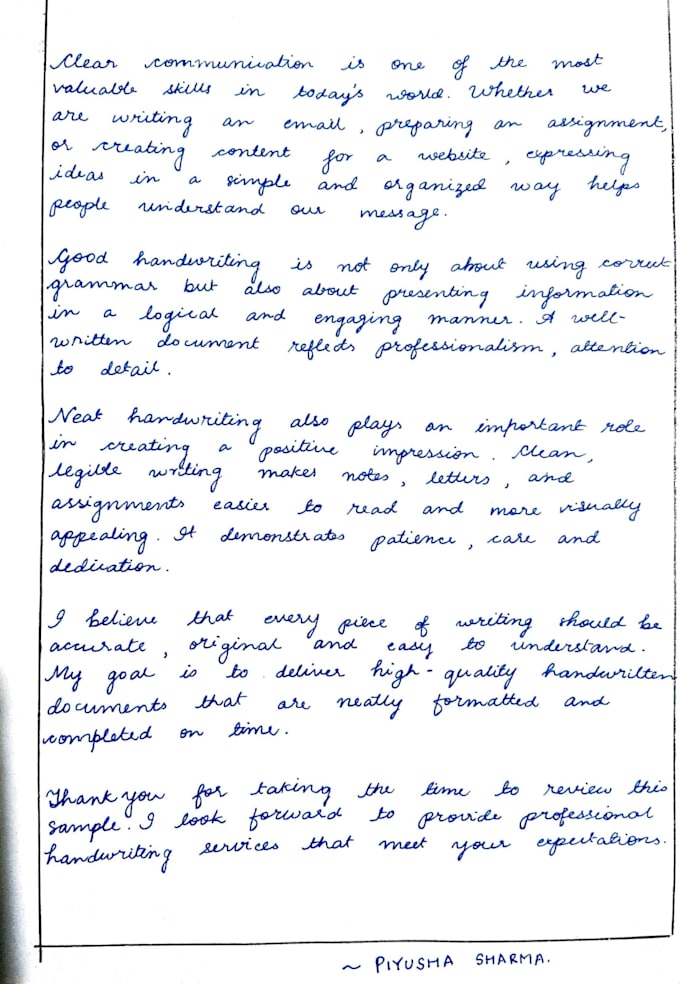 Clear communication is one of the most
valuable skills in today's world. Whether we
are writing an email, preparing an assignment,
or creating content for a website, expressing
ideas in a simple and organized way helps
people understand our message.
Good handwriting is not only about using correct
grammar but also about presenting information
in a logical and engaging manner. A well-
written document reflects professionalism, attention
to detail.
Neat handwriting also plays an important role
in creating a positive impression. Clean,
legible writing makes notes, letters, and
assignments easier to read and more visually
appealing. It demonstrates patience, care and
dedication.
I believe that every piece of writing should be
accurate, original and easy to understand.
My goal is to deliver high-quality handwritten
documents that are neatly formatted and
completed on time.
Thank you for taking the time to review this
sample. I look forward to provide professional
handwriting services that meet your expectations.
~ PIYUSHA SHARMA.